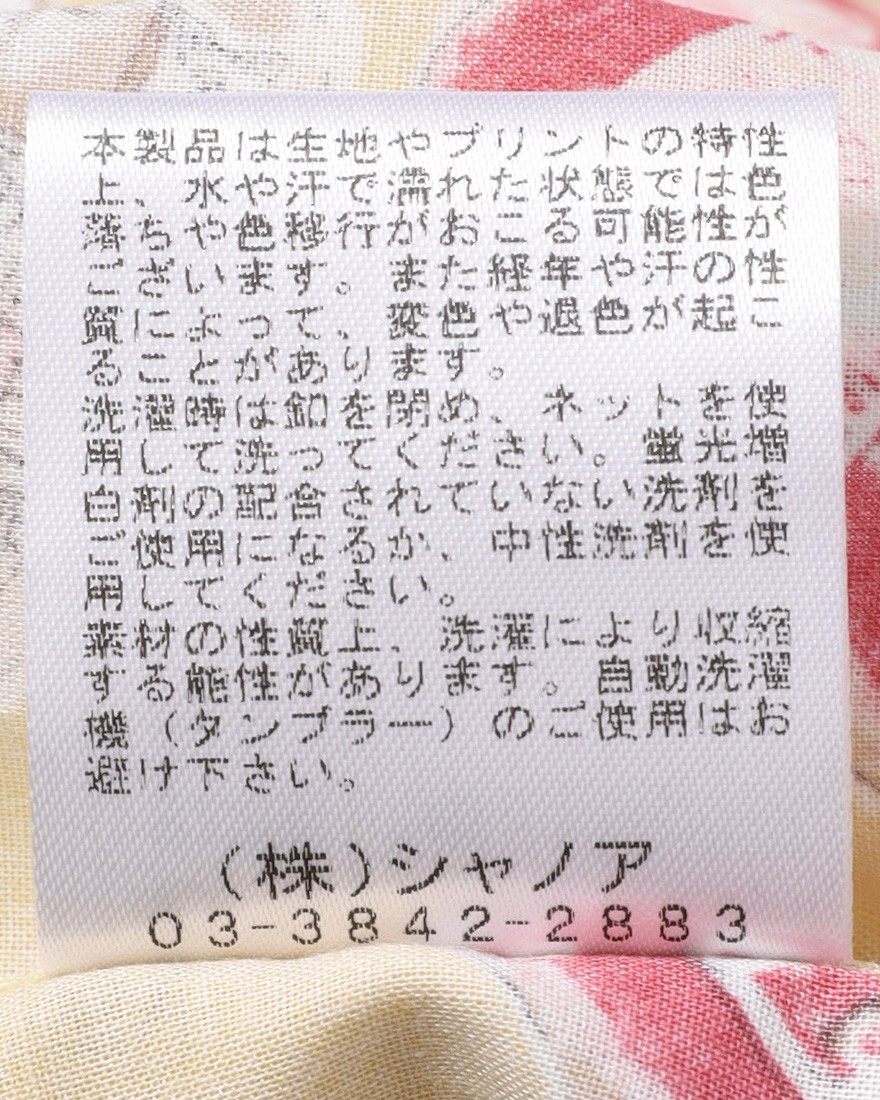 本製品は生地やプリントの特性
上、水や汗で濡れた状態では色
落ちや色移行がおこる可能性が
ございます。また経年や汗の性
質によって、変色や退色が起こ
ることがあります。
洗濯時は釦を閉め、ネットを使
用して洗ってください。蛍光増
白剤の配合されていない洗剤を
ご使用になるか、中性洗剤を使
用してください。
素材の性質上、洗濯により収縮
する能性があります。自動洗濯
機（タンブラー）のご使用はお
避け下さい。
（株）シャノア
03-3842-2883